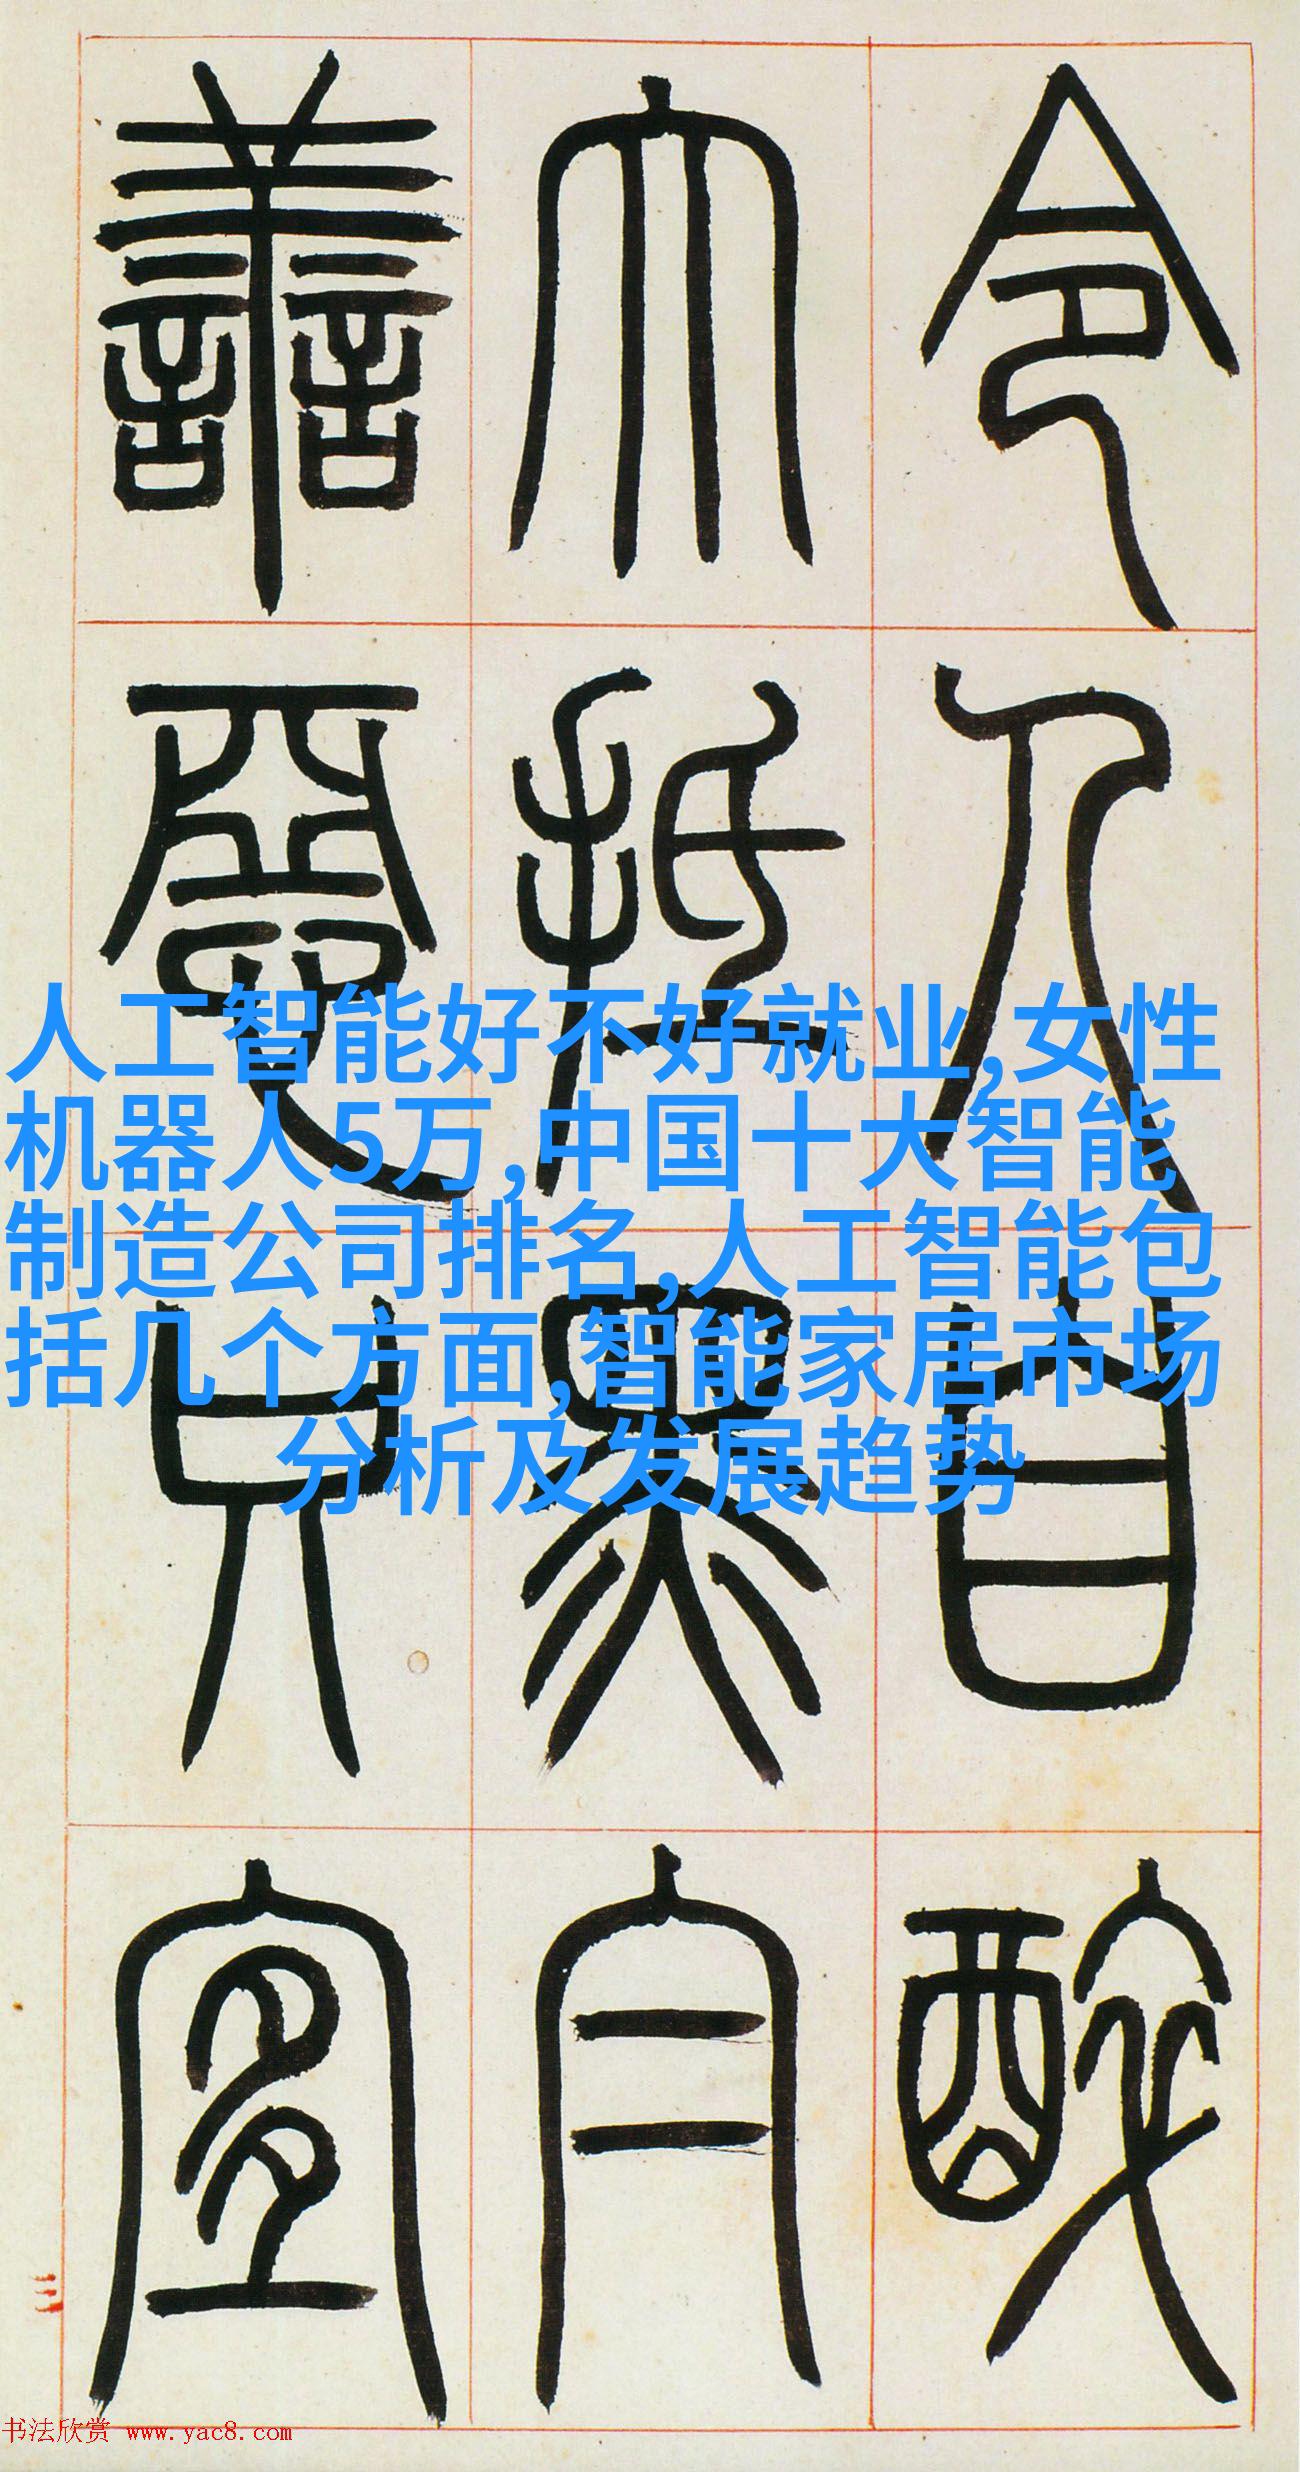 令人自醉
抵
譱宜
人工智能好不好就业,女性
机器人5万,中国十大智能
制造公司排名,人工智能包
括几个方面,智能家居市场
分析及发展趋势
三
书法欣赏 www.yac8.com